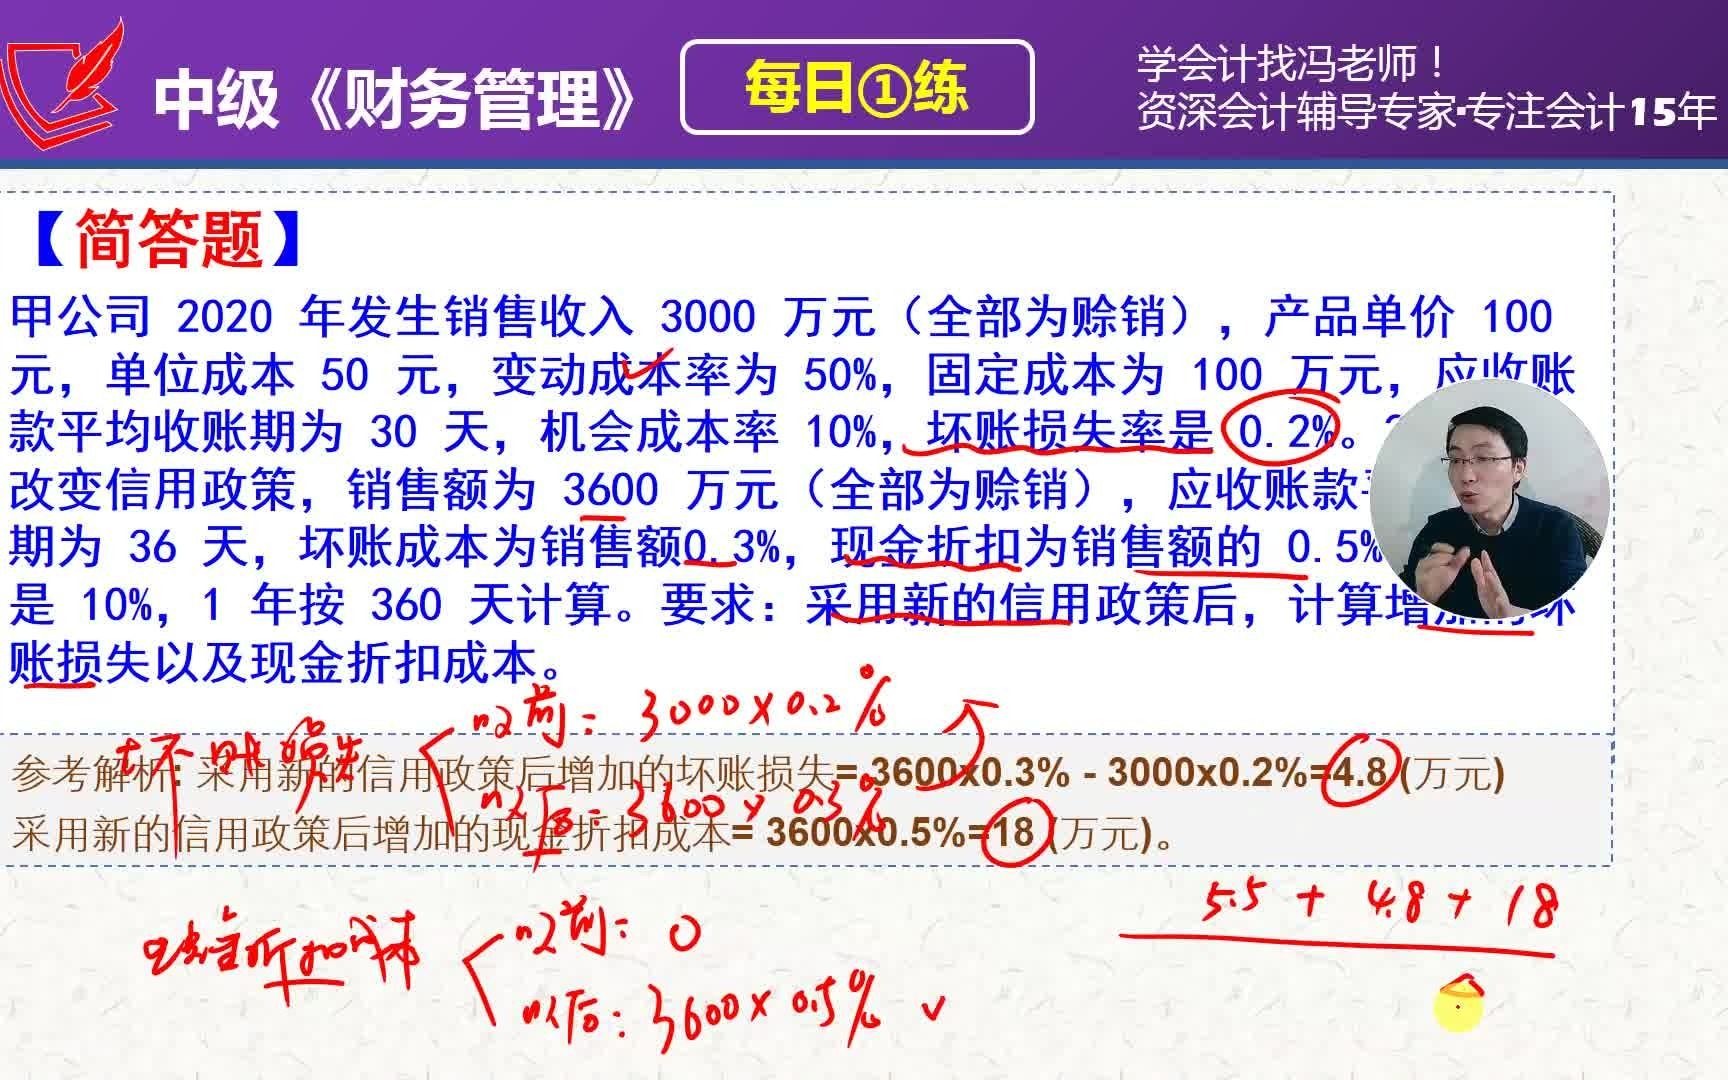 中级《财务管理》
每日①练
学会计找冯老师！
资深会计辅导专家·专注会计15年
【简答题】
甲公司 2020 年发生销售收入 3000 万元（全部为赊销），产品单价 100
元，单位成本 50 元，变动成本率为 50%，固定成本为 100 万元，应收账
款平均收账期为 30 天，机会成本率 10%，坏账损失率是 0.2%。
改变信用政策，销售额为 3600 万元（全部为赊销），应收账款
期为 36 天，坏账成本为销售额0.3%，现金折扣为销售额的 0.5%
是 10%，1 年按 360 天计算。要求：采用新的信用政策后，计算增加的坏
账损失以及现金折扣成本。
坏账损失
改前：3000×0.2%
参考解析: 采用新的信用政策后增加的坏账损失= 3600x0.3% - 3000x0.2%=4.8 (万元)
改后：3600×0.3%
采用新的信用政策后增加的现金折扣成本= 3600x0.5%=18 (万元)。
5.5 + 4.8 + 18
现金折扣成本
改前：0
改后：3600×0.5%